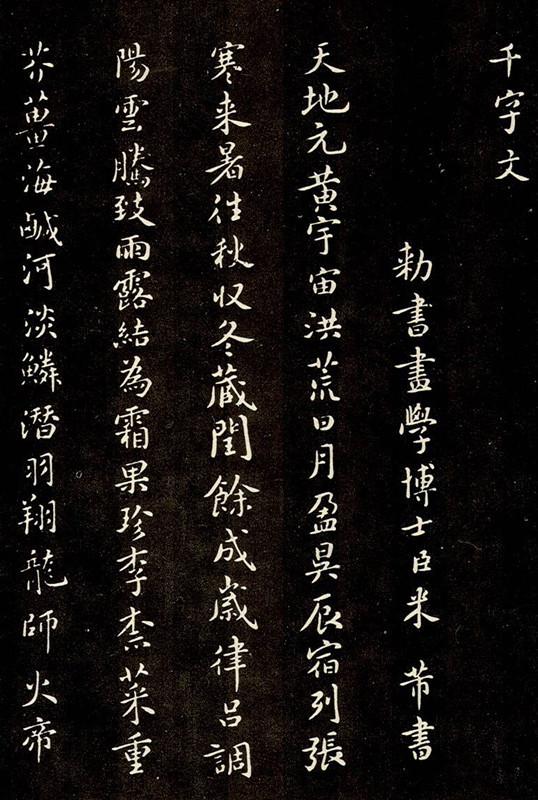 千字文
勑書畫學博士臣米芾書
天地元黃宇宙洪荒日月盈昃辰宿列張
寒来暑往秋収冬蔵閏餘成歲律呂調
陽雲騰致雨露結為霜果珍李柰菜重
芥薑海鹹河淡鱗潛羽翔龍師火帝